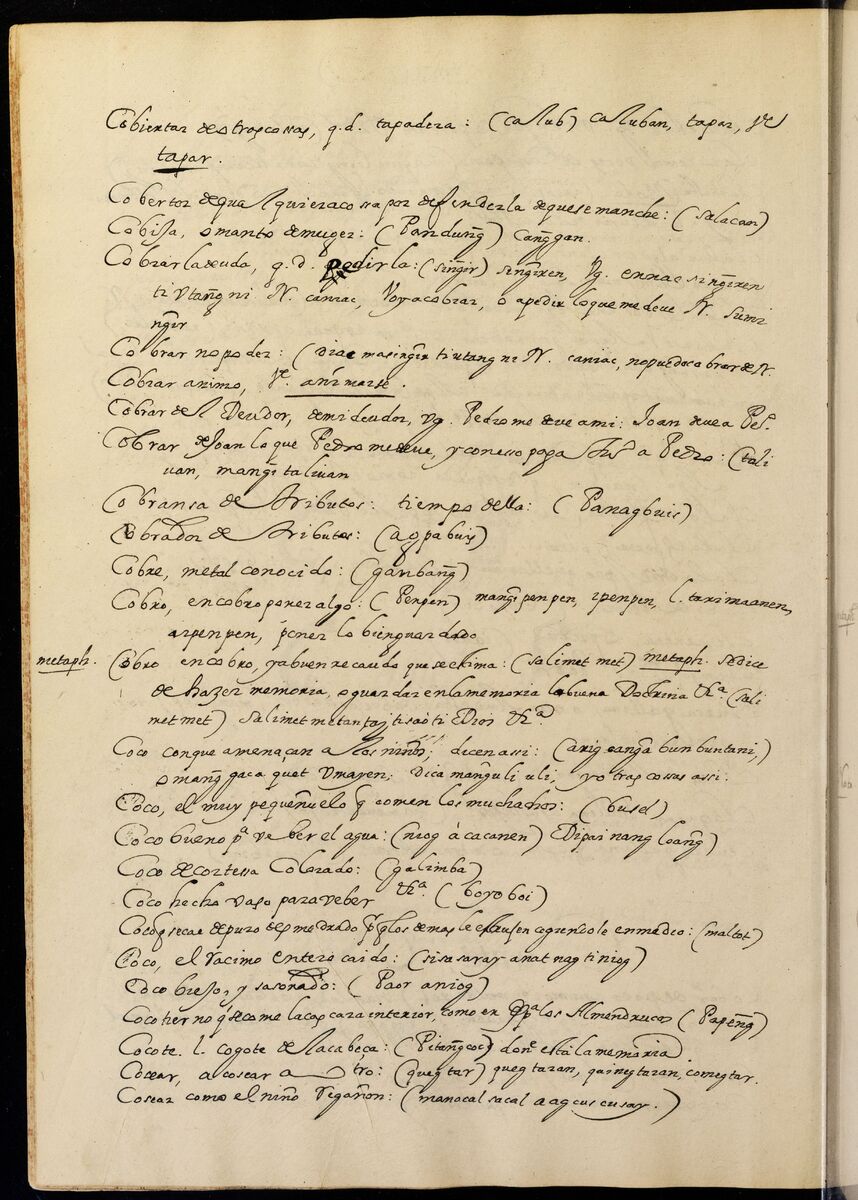 Cobiertar de otras cossas, q.d. tapadera: (calub) caluban, tapar, Ve
tapar.
Cobertor de qualquiera cossa por defenderla de que se manche: (salacan)
Cobija, o manto de muger: (Pandung̃) cang̃gan.
Cobrar la deuda, q.d. pedirla: (sing̃ir) sing̃iren, Vg. ennac sing̃iren
ti Vtang̃ ni N. caniac, Voy a cobrar, o a pedir lo que me deve N. sumi
ng̃ir
Cobrar no poder: (Diac masing̃ir ti utang ni N. caniac, no puedo cobrar de N.
Cobrar animo, Ve. animarse.
Cobrar del Deudor, de mi deudor, Vg. Pedro me deve a mi: Joan deve a Pe.º
Cobrar de Joan lo que Pedro me deve, y con esso paga a Pedro: (tali
uan, mang̃italiuan
Cobransa de tributos: tiempo della: (Panagbuis)
Cobrador de tributos: (agpabuis)
Cobre, metal conocido: (gambang̃)
Cobro, en cobro poner algo: (Penpen) mang̃ipenpen, ipenpen, l. tarimaanen,
arpenpen, poner lo bien guardado
metaph. Cobro en cobro, y a buen recaudo que se estima: (salimetmet) metaph. se dice
de hazer memoria, o guardar en la memoria la buena Doctrina &ª (sali
metmet) salimetmetan ti Dios &ª
Coco con que amenaçan a los niños; dicen assi: (arig cang̃a bunbuntani,)
o mang̃gaca quet Vmayen, dica mang̃uliuli, y otras cossas assi.
Coco, el muy pequeñuelo q comen los muchachos: (busel)
Coco bueno pª veber el agua: (niog á cacanen) Dipainangloang̃)
Coco de cortessa Colorado: (galimba)
Coco hecho vaso para veber &ª. (boyoboi)
Coco q se cae de puro desmedrado, cogiendole en medio: (maltot)
Coco, el racimo entero caido: (sisasaray anat nagtiniog)
Coco viejo, y sasonado: (Paor aniog)
Coco tierno q se come la cascara interior, como en los Almendrucos (Papeng̃)
Cocote. l. cogote de la cabeça: (Pitang̃coc) donᵉ està la memoria.
Cosear, a cosear a otro: (quegtar) quegtaran, quinegtaran, comegtar.
Cosear como el niño regañon: (manocalsacal a agcuscusay.)